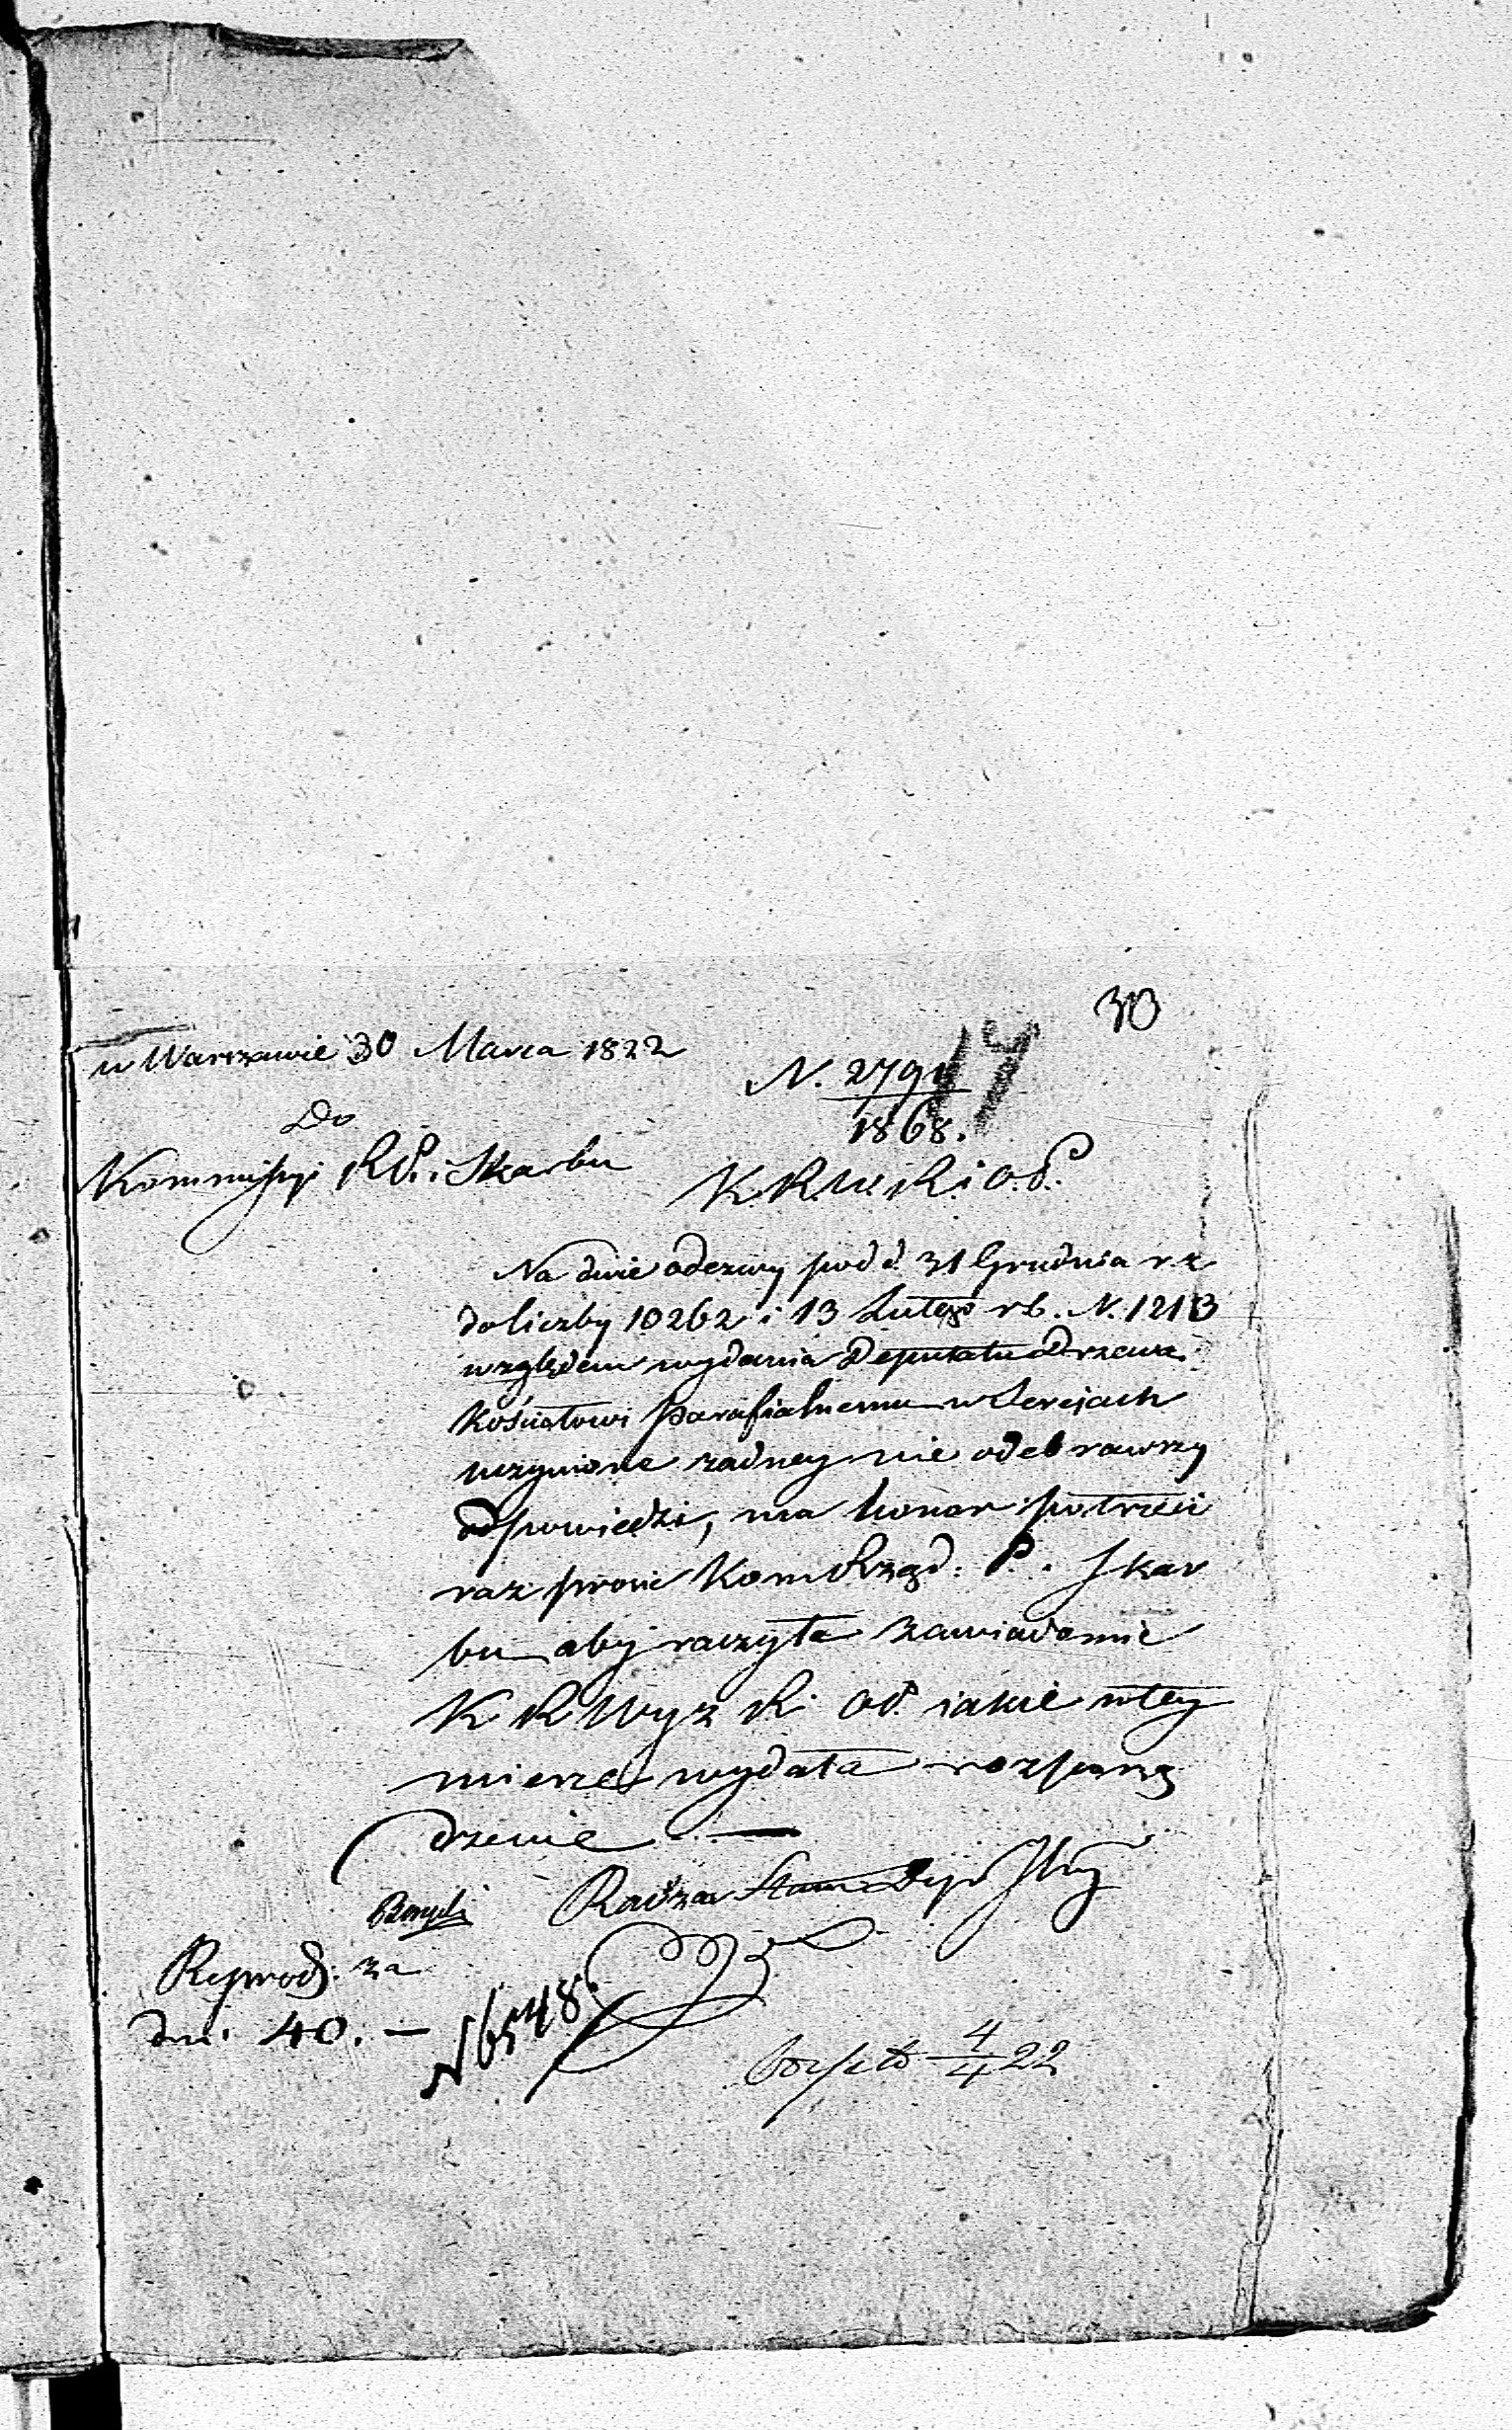 30
w Warszawie 30 Marca 1822
17
N. 2791
1868.
Do
Kommissyi R.P. i Skarbu
K.R.W.R.i O.P.
Na dwie odezwy pod d. 31 Grudnia r.z.
do liczby 10262 i 13 Lutego r.b. N. 1213
względem wydania Deputatu Drzewa
Kościołowi parafialnemu w Serejach
uczynione żadney nie odebrawszy
odpowiedzi, ma honor po trzeci
raz prosić Kom Rząd: P. i Skar
bu aby raczyła zawiadomić
K R Wyz R i O.P. jakie w tey
mierze wydała rozporzą
dzenie. —
Radzca Stanu
Reprod. za
dni 40. —
N 6548.
4/4 22